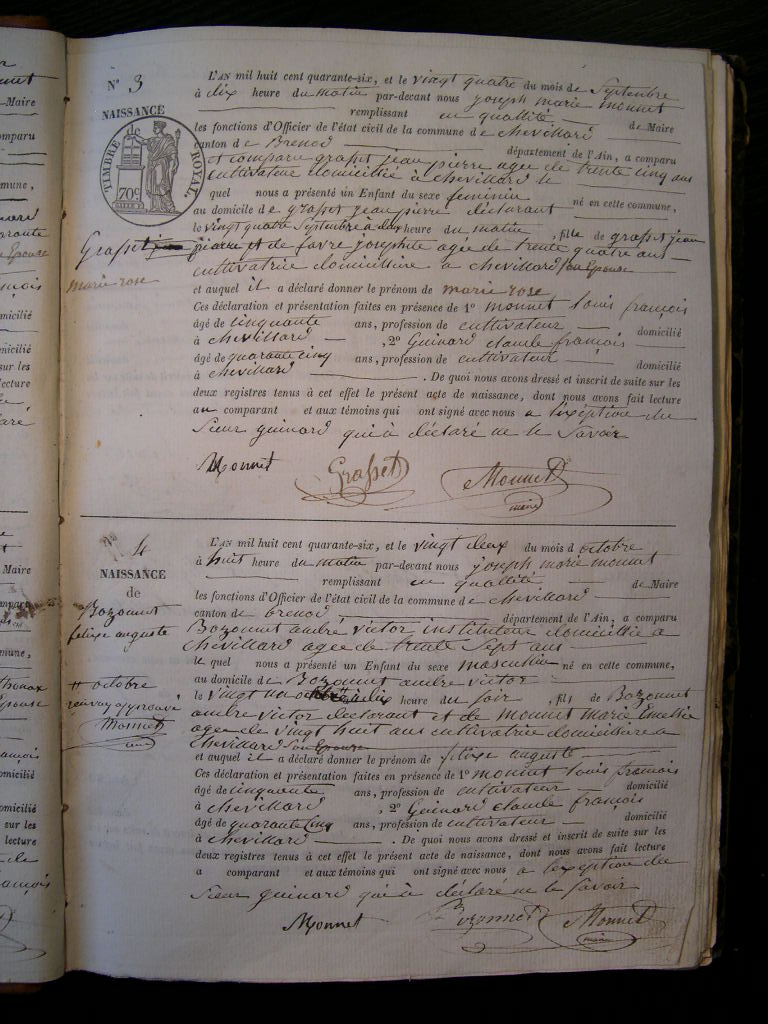 N° 3
NAISSANCE
de
TIMBRE ROYAL
70c
Grasset
marie rose
L'AN mil huit cent quarante-six, et le vingt quatre du mois de Septembre
à dix heure du matin par-devant nous joseph marie monnet
remplissant en quallité de Maire
les fonctions d'Officier de l'état civil de la commune de chevillard
canton de Brenod département de l'Ain, a comparu
et comparu grasset jean pierre agee de trente cinq ans
cultivateur domicillié à chevillard le
quel nous a présenté un Enfant du sexe feminin
au domicile de grasset jean pierre déclarant né en cette commune,
le vingt quatre Septembre a heure du matin, fille de grasset jean
pierre et de favre josephte agée de trente quatre ans
cultivatrice domicilliere a chevillard son Epouse
et auquel il a déclaré donner le prénom de marie rose
Ces déclaration et présentation faites en présence de 1° monnet louis françois
âgé de cinquante ans, profession de cultivateur domicilié
à chevillard , 2° Guinard claude françois
âgé de quarante cinq ans, profession de cultivateur domicilié
à chevillard . De quoi nous avons dressé et inscrit de suite sur les
deux registres tenus à cet effet le présent acte de naissance, dont nous avons fait lecture
au comparant et aux témoins qui ont signé avec nous a l'exéption du
Sieur guinard qui à déclaré ne le Savoir
Monnet Grasset Monnet
maire
N° 4
NAISSANCE
de
Bozonnet
felixe auguste
octobre
renvoy approuvé
Monnet
L'AN mil huit cent quarante-six, et le vingt deux du mois d octobre
à huit heure du matin par-devant nous joseph marie monnet
remplissant en quallité de Maire
les fonctions d'Officier de l'état civil de la commune de chevillard
canton de brenod département de l'Ain, a comparu
Bozonnet andré victor instituteur domicillié a
chevillard agee de trente Sept ans
le quel nous a présenté un Enfant du sexe masculin né en cette commune,
au domicile de Bozonnet andre victor
le vingt un a dix heure du soir, fils de Bozonnet
andre victor declarant et de monnet marie Emelie
agee de vingt huit ans cultivatrice domicilliere a
chevillard son Epouse
et auquel il a déclaré donner le prénom de felixe auguste
Ces déclaration et présentation faites en présence de 1° monnet louis francois
âgé de cinquante ans, profession de cultivateur domicilié
à chevillard , 2° Guinard claude françois
âgé de quarante cinq ans, profession de cultivateur domicilié
à chevillard . De quoi nous avons dressé et inscrit de suite sur les
deux registres tenus à cet effet le présent acte de naissance, dont nous avons fait lecture
a comparant et aux témoins qui ont signé avec nous a l'exéption du
Sieur guinard qui à déclaré ne le Savoir
Monnet Bozonnet Monnet
maire